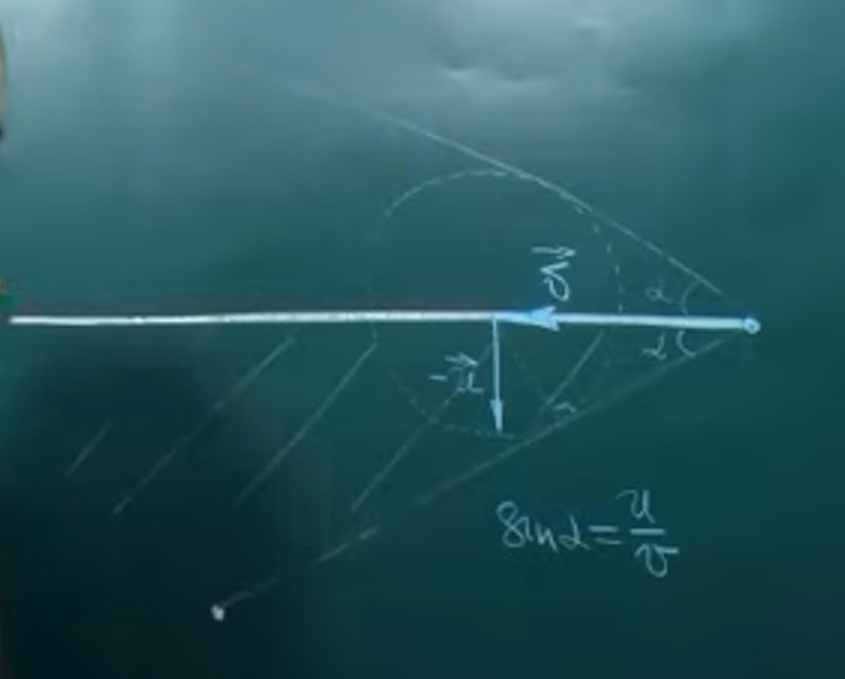 v⃗
α
α
-u⃗
sin α = u/v